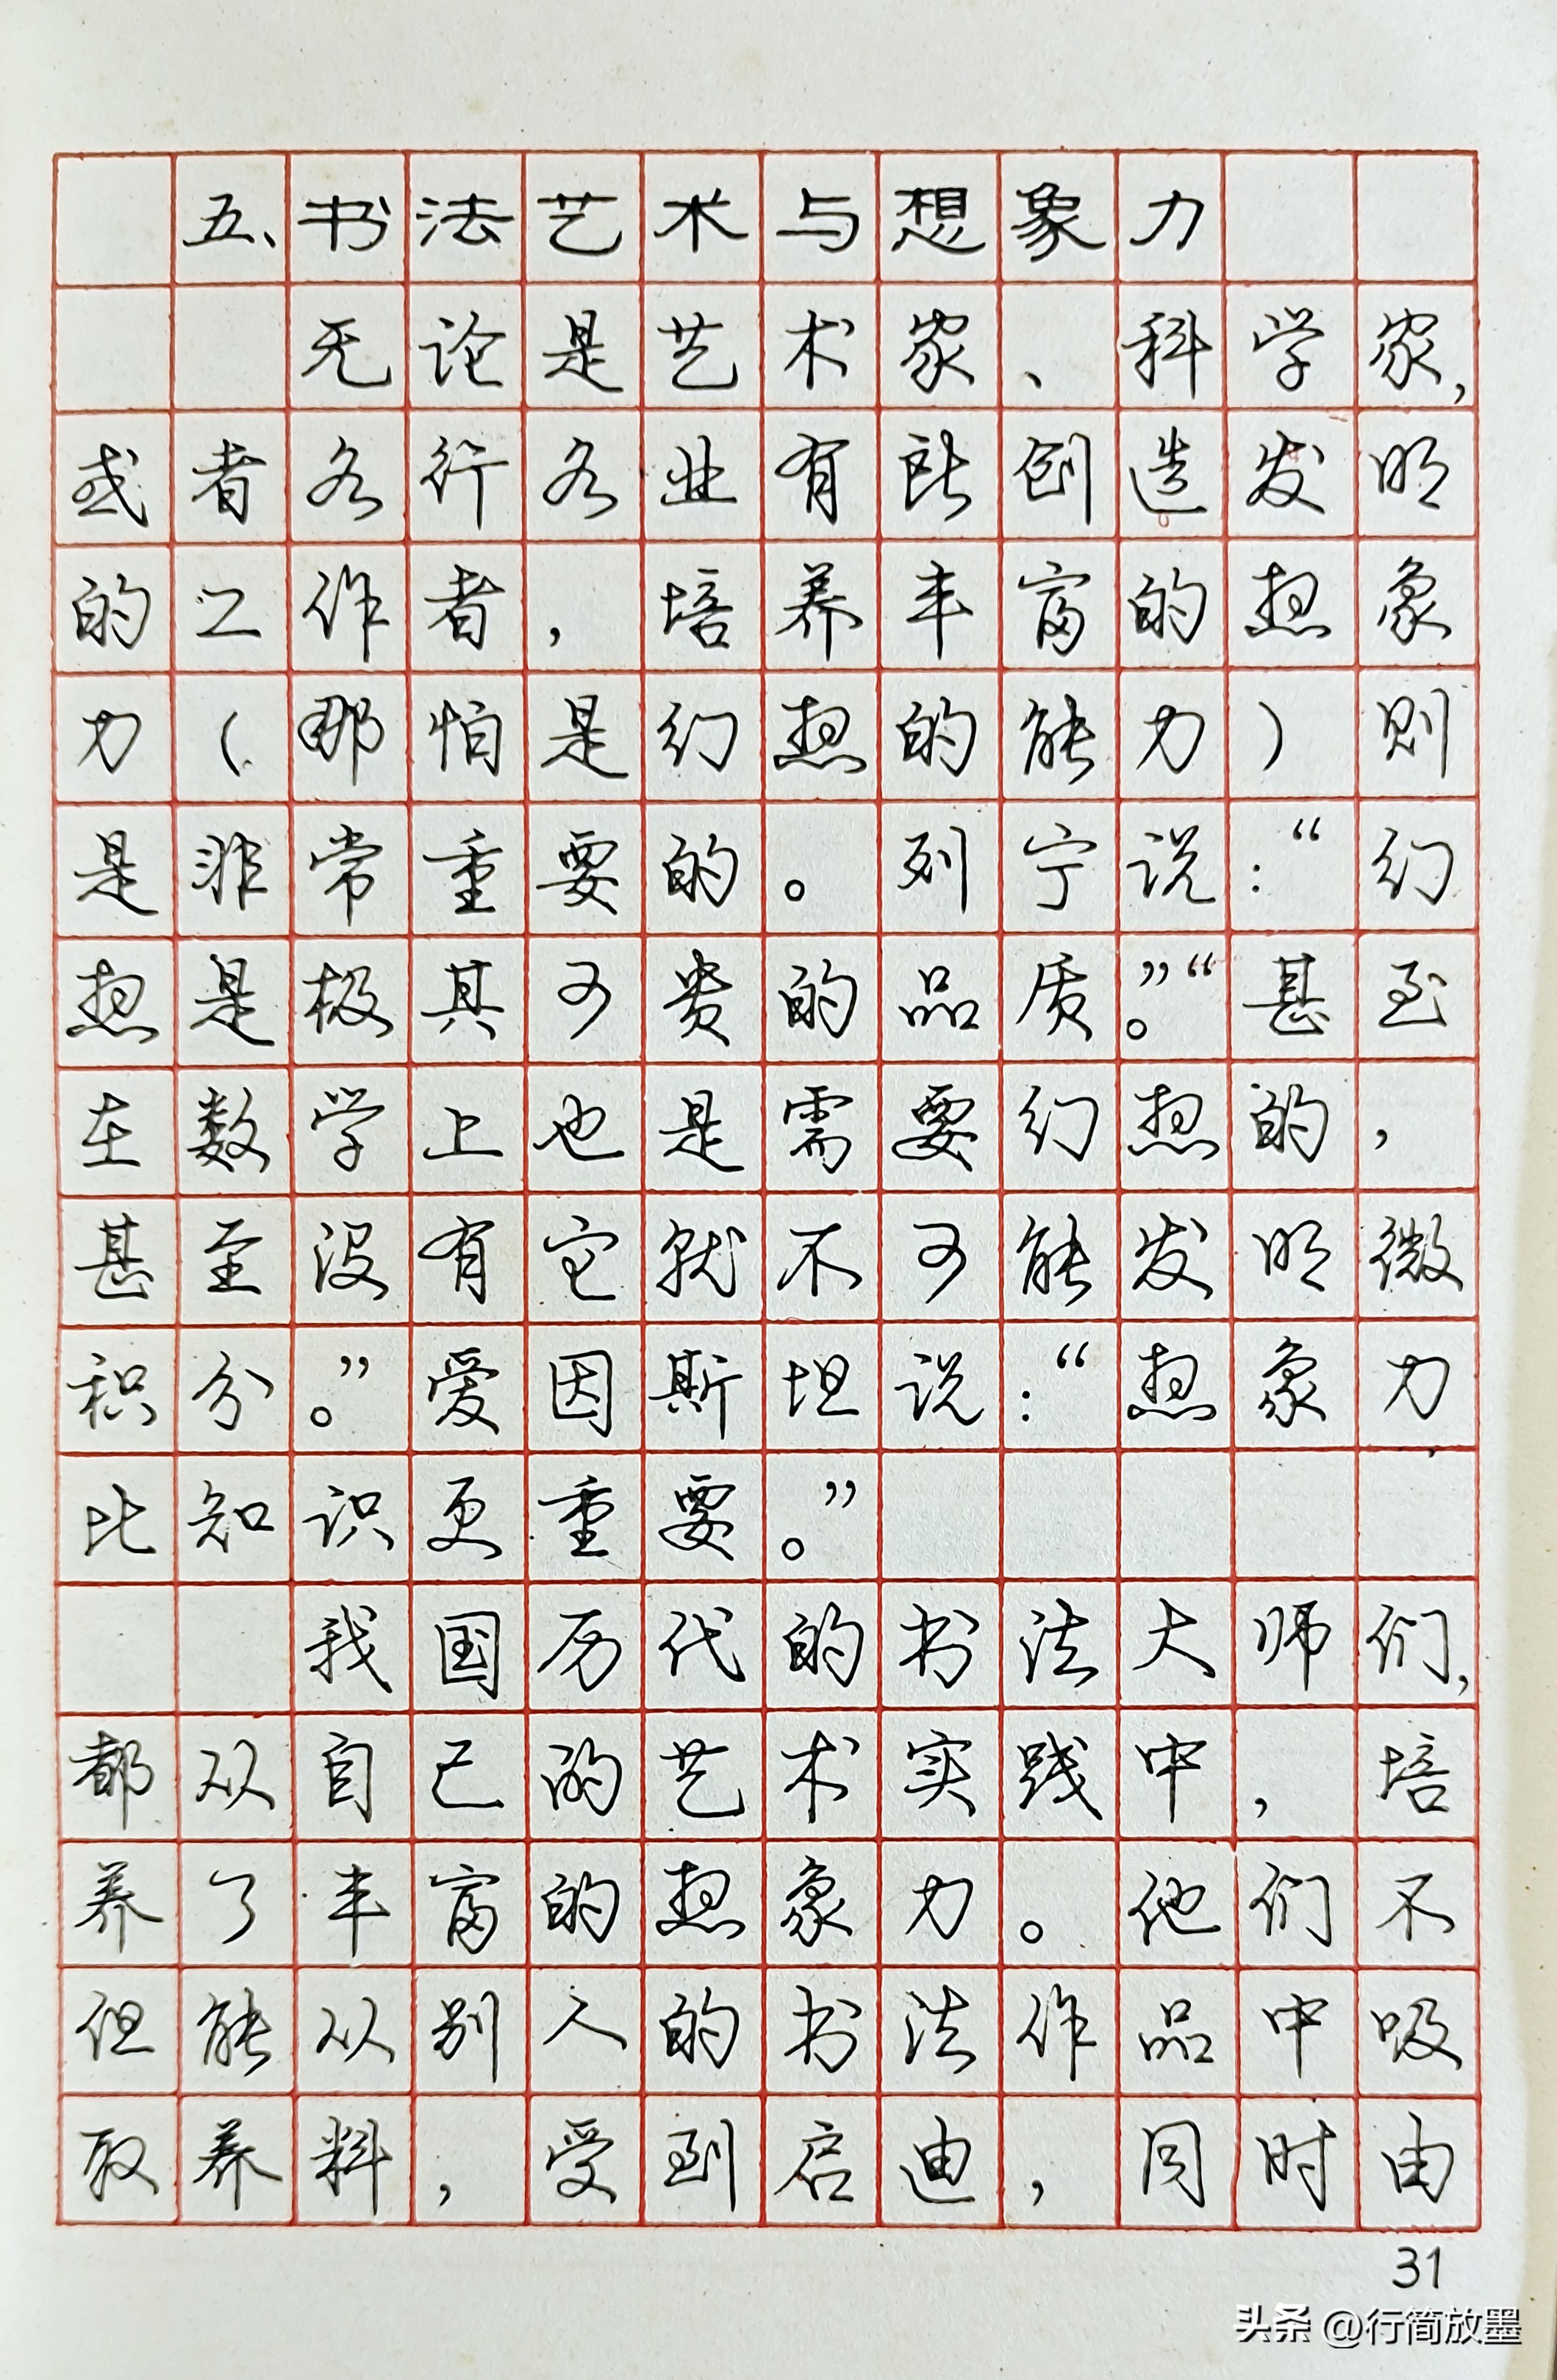 五、书法艺术与想象力
无论是艺术家、科学家,
或者各行各业有所创造发明
的工作者，培养丰富的想象
力（那怕是幻想的能力）则
是非常重要的。列宁说：“幻
想是极其可贵的品质。”“甚至
在数学上也是需要幻想的，
甚至没有它就不可能发明微
积分。”爱因斯坦说：“想象力
比知识更重要。”
我国历代的书法大师们,
都从自己的艺术实践中，培
养了丰富的想象力。他们不
但能从别人的书法作品中吸
取养料，受到启迪，同时由
31
头条 @行简放墨